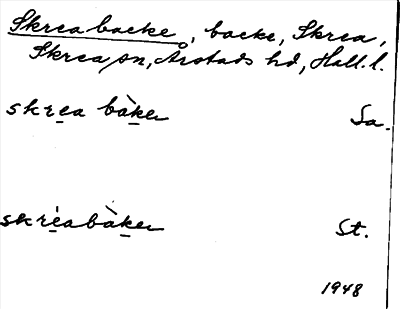 Skrea backe, backe, Skrea,
Skrea sn, Årstads hd, Hall. l.
skrea bàker Sa.
skrèabàker St.
1948